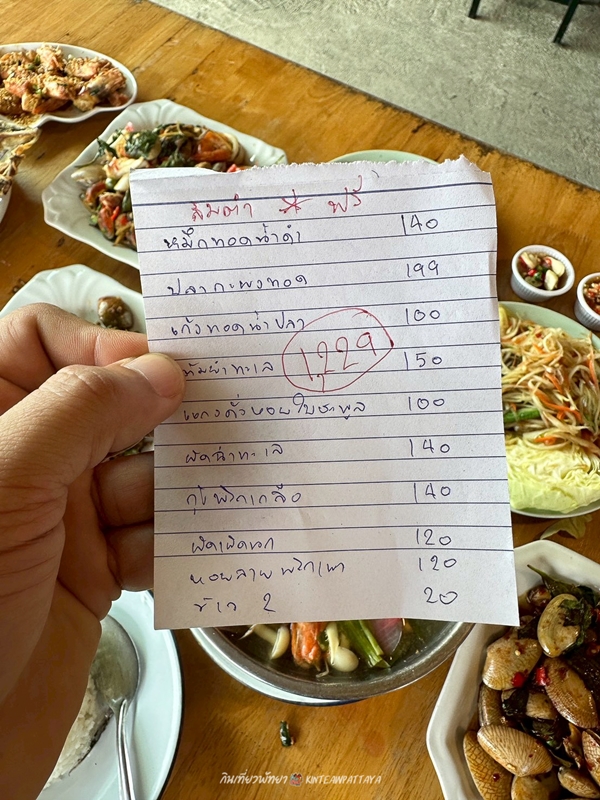 ส้มตำ ฟรี
หมึกทอดน้ำดำ 140
ปลากะพงทอด 199
เก้งทอดน้ำปลา 100
1229
ต้มยำทะเล 150
แกงคั่วหอยใบชะพูล 100
ผัดฉ่าทะเล 140
กุ้งพริกเกลือ 140
ผัดเผ็ดนก 120
หอยลายพริกเผา 120
ข้าว 2 20
กินเที่ยวพัทยา KINTEAWPATTAYA